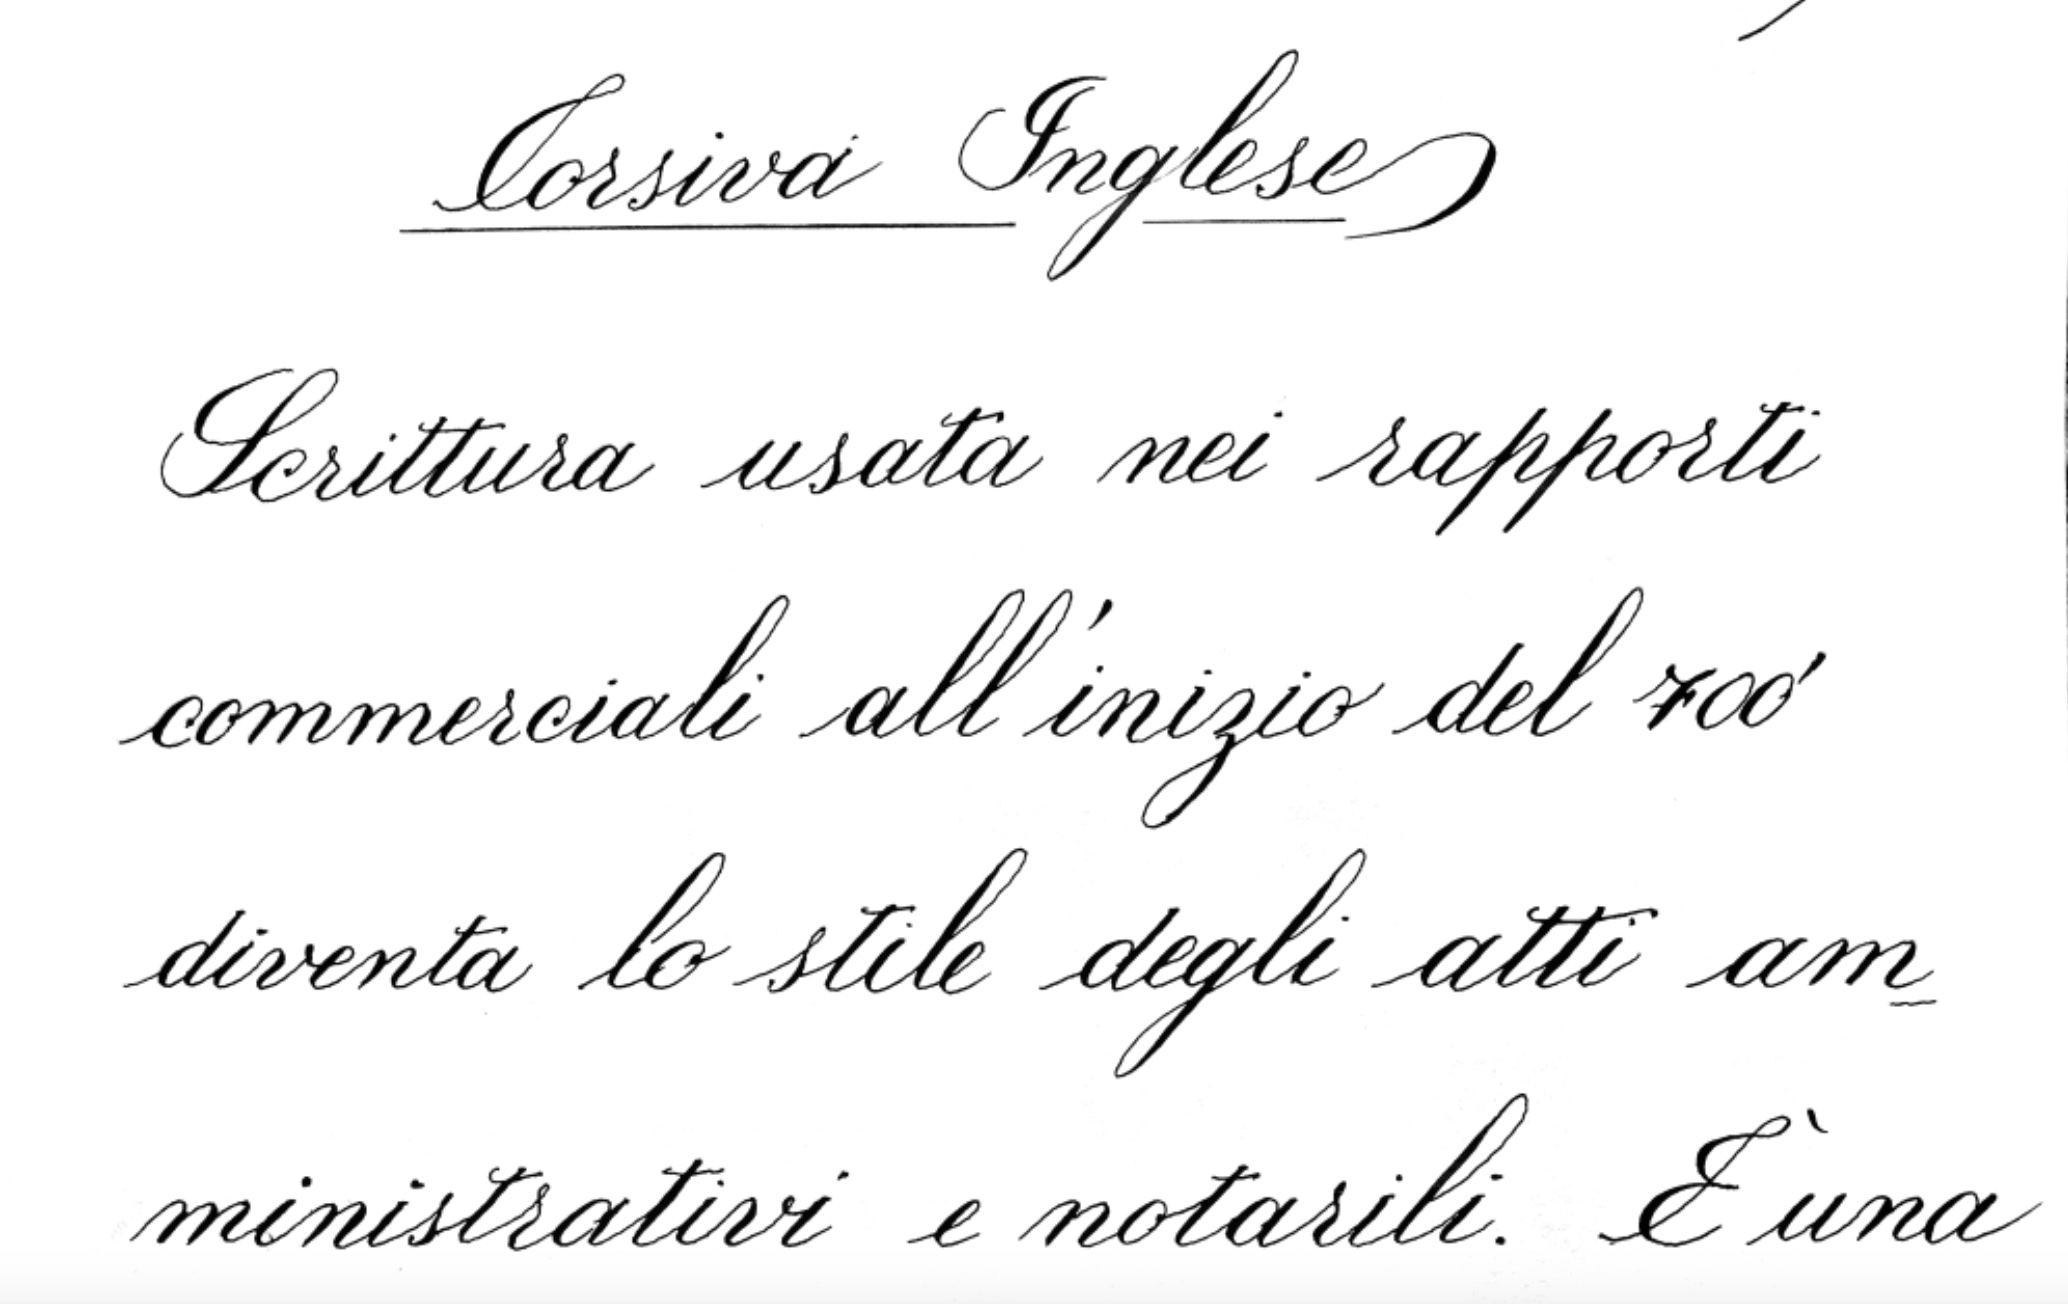 Corsiva Inglese
Scrittura usata nei rapporti
commerciali all'inizio del 700'
diventa lo stile degli atti am_
ministrativi e notarili. È una